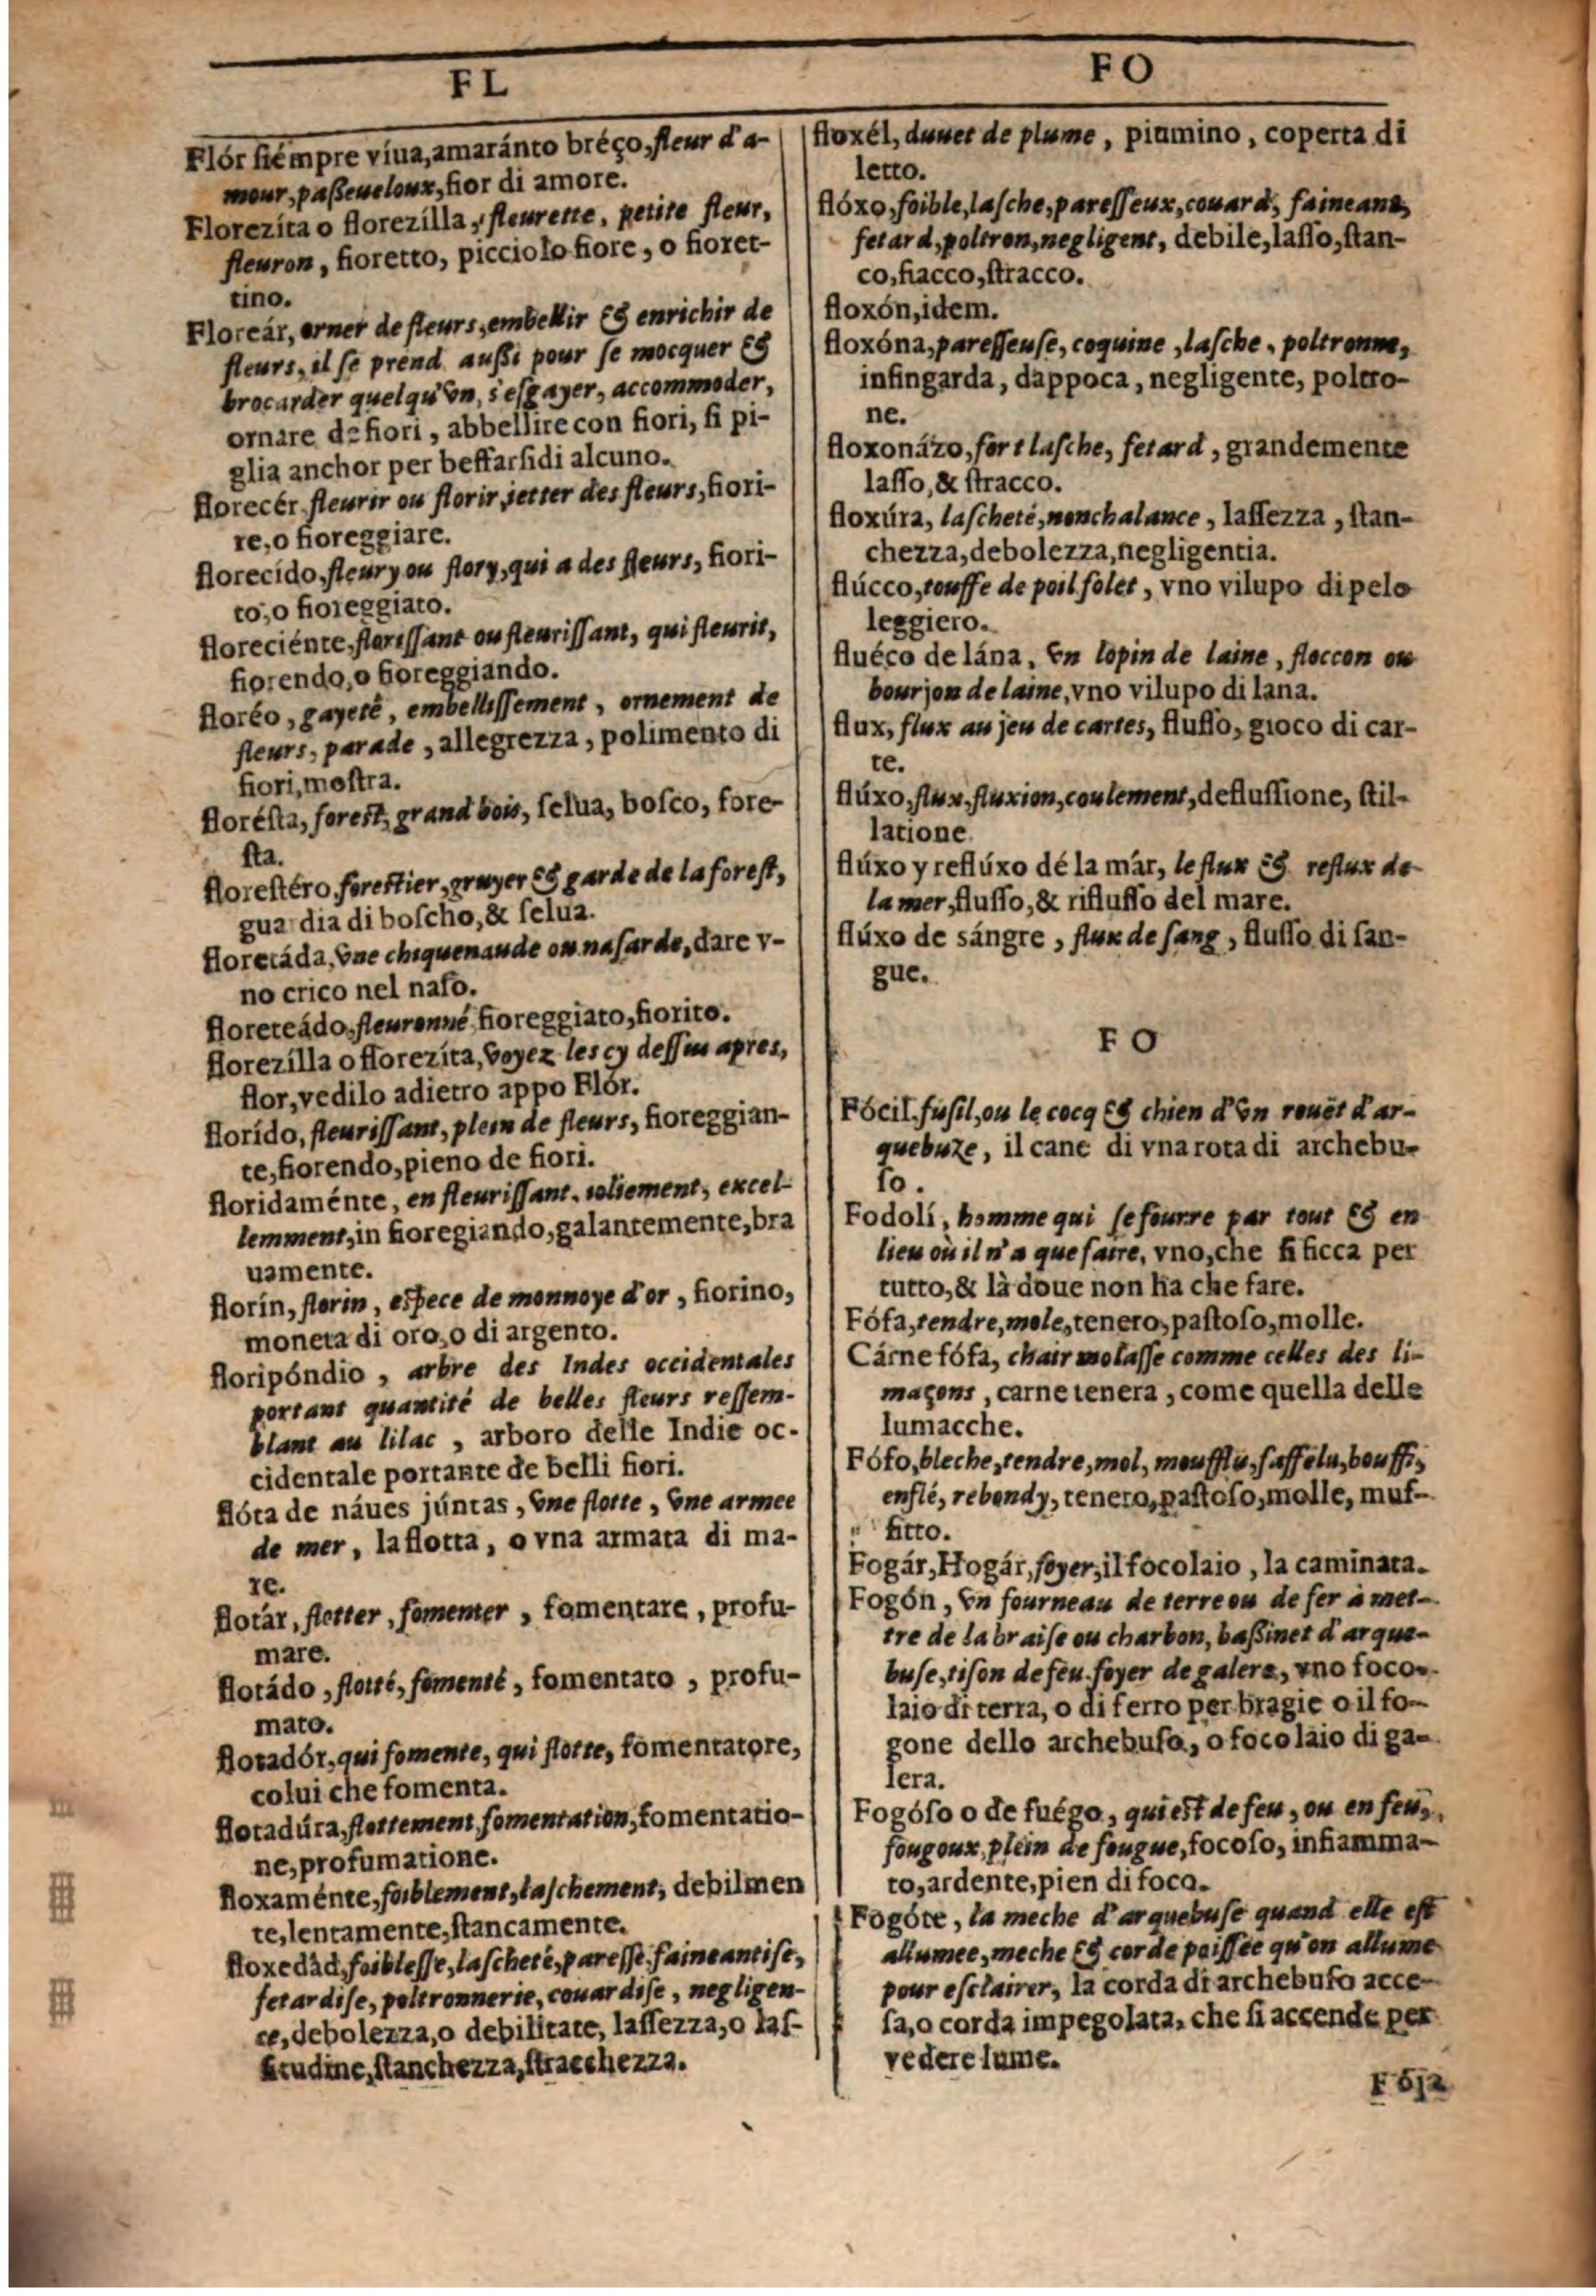 FL
Flór ſiémpre víua,amaránto bréço,fleur d'a-
mour,paſſeueloux,fior di amore.
Florezíta o florezílla, fleurette, petite fleur,
fleuron, fioretto, picciolo fiore, o fioret-
tino.
Floreár, orner de fleurs,embellir & enrichir de
fleurs, il ſe prend auſſi pour ſe mocquer &
brocarder quelqu'vn, s'eſgayer, accommoder,
ornare de fiori, abbellire con fiori, ſi pi-
glia anchor per beffarſidi alcuno.
florecér, fleurir ou florir, jetter des fleurs,fiori-
re,o fioreggiare.
florecído,fleury ou flory,qui a des fleurs, fiori-
to,o fioreggiato.
floreciénte,floriſſant ou fleuriſſant, qui fleurit,
fiorendo,o fioreggiando.
floréo, gayeté, embelliſſement, ornement de
fleurs, parade, allegrezza, polimento di
fiori,moſtra.
floréſta, foreſt, grand bois, ſelua, boſco, fore-
ſta.
floreſtéro foreſtier, gruyer & garde de la foreſt,
guardia di boſcho,& ſelua.
floretáda, vne chiquenaude ou naſarde, dare v-
no crico nel naſo.
floreteádo,fleuronné fioreggiato,fiorito.
florezílla o florezíta, voyez les cy deſſus apres,
flor,vedilo adietro appo Flór.
florído, fleuriſſant, plein de fleurs, fioreggian-
te,fiorendo,pieno de fiori.
floridaménte, en fleuriſſant, joliement, excel-
lemment,in fioregiando,galantemente,bra
uamente.
florín, florin, eſpece de monnoye d'or, fiorino,
moneta di oro,o di argento.
floripóndio, arbre des Indes occidentales
portant quantité de belles fleurs reſſem-
blant au lilac, arboro delle Indie oc-
cidentale portante de belli fiori.
flóta de náues júntas, vne flotte, vne armee
de mer, la flotta, o vna armata di ma-
re.
flotár, flotter, fomenter, fomentare, profu-
mare.
flotádo, flotté, fomenté, fomentato, profu-
mato.
flotadór, qui fomente, qui flotte, fomentatore,
colui che fomenta.
flotadúra,flottement fomentation,fomentatio-
ne,profumatione.
floxaménte,foiblement,laſchement, debilmen
te,lentamente,ſtancamente.
floxedàd,foibleſſe,laſcheté,pareſſe faineantiſe,
fetardiſe, poltronnerie, couardiſe, negligen-
ce,debolezza,o debilitate, laſſezza,o laſ-
ſitudine,ſtanchezza,ſtracchezza.
FO
floxél, duuet de plume, piumino, coperta di
letto.
flóxo,foible,laſche,pareſſeux,couard, faineant,
fetard,poltron,negligent, debile,laſſo,ſtan-
co,fiacco,ſtracco.
floxón,idem.
floxóna,pareſſeuſe, coquine, laſche, poltronne,
infingarda, dappoca, negligente, poltro-
ne.
floxonázo,fort laſche, fetard, grandemente
laſſo,& ſtracco.
floxúra, laſcheté,nonchalance, laſſezza, ſtan-
chezza,debolezza,negligentia.
flúcco,touffe de poil folet, vno vilupo di pelo
leggiero.
fluéco de lána, vn lopin de laine, floccon ou
bourjon de laine,vno vilupo di lana.
flux, flux au jeu de cartes, fluſſo, gioco di car-
te.
flúxo,flux,fluxion,coulement,defluſſione, ſtil-
latione.
flúxo y reflúxo dé la már, le flux & reflux de
la mer,fluſſo,& rifluſſo del mare.
flúxo de sángre, flux de ſang, fluſſo di ſan-
gue.
FO
Fócil, fuſil,ou le cocq & chien d'vn rouët d'ar-
quebuze, il cane di vna rota di archebu-
ſo.
Fodolí, homme qui ſe fourre par tout & en
lieu où il n'a que faire, vno,che ſi ficca per
tutto,& là doue non ha che fare.
Fófa,tendre,mole,tenero,paſtoſo,molle.
Cárne fófa, chair molaſſe comme celles des li-
maçons, carne tenera, come quella delle
lumacche.
Fófo,bleche,tendre,mol, moufflu,faffelu,bouffi,
enflé, rebondy, tenero,paſtoſo,molle, muf-
fitto.
Fogár,Hogár,foyer,il focolaio, la caminata.
Fogón, vn fourneau de terre ou de fer à met-
tre de la braiſe ou charbon, baſſinet d'arque-
buſe,tiſon de feu foyer de galere, vno foco-
laio di terra, o di ferro per bragie o il fo-
gone dello archebuſo, o focolaio di ga-
lera.
Fogóſo o de fuégo, qui eſt de feu, ou en feu,
fougoux, plein de fougue,focoſo, infiamma-
to,ardente,pien di foco.
Fogóte, la meche d'arquebuſe quand elle eſt
allumee,meche & corde poiſſée qu'on allume
pour eſclairer, la corda di archebuſo acce-
ſa,o corda impegolata, che ſi accende per
vedere lume.
Fója